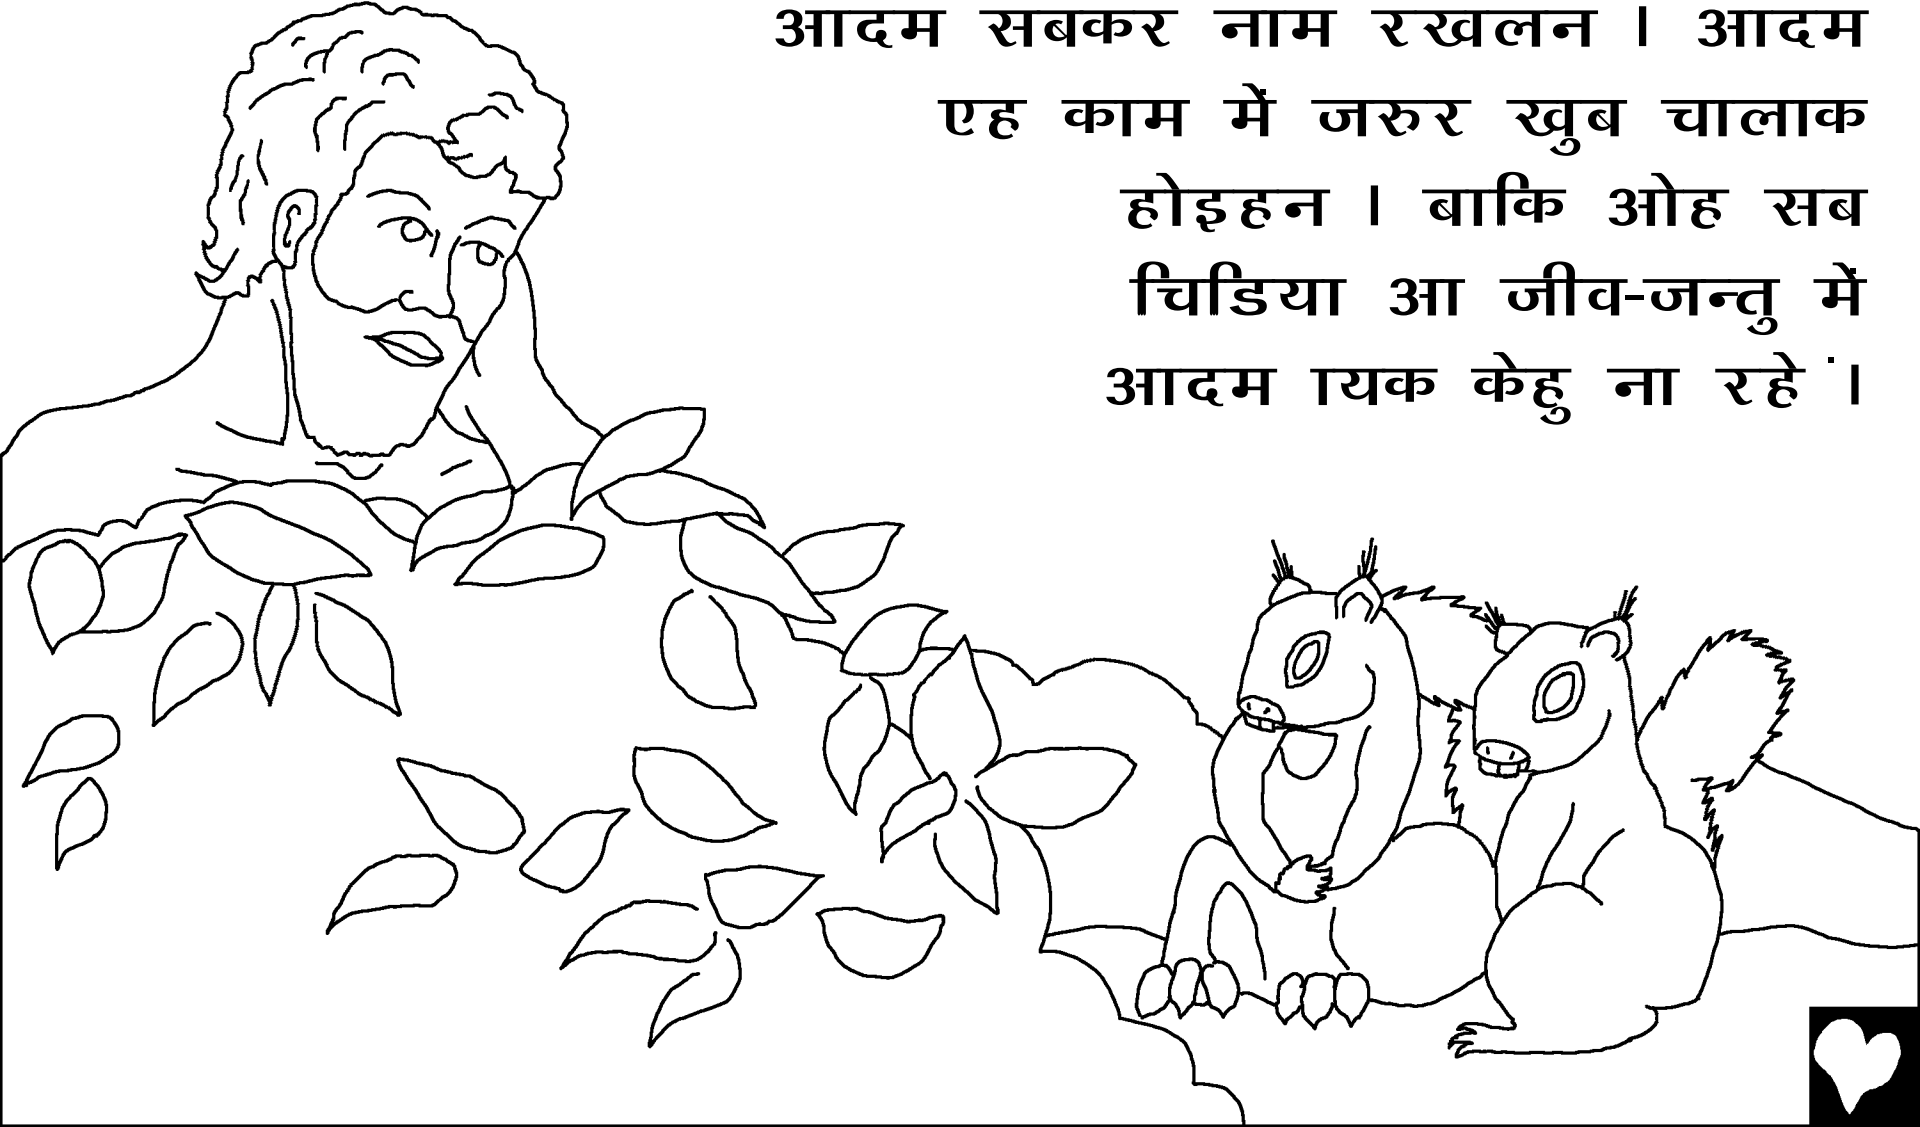 आदम सबकर नाम रखलन । आदम
एह काम में जरुर खुब चालाक
होइहन । बाकि ओह सब
चिडिया आ जीव-जन्तु में
आदम ायक केहु ना रहें ।